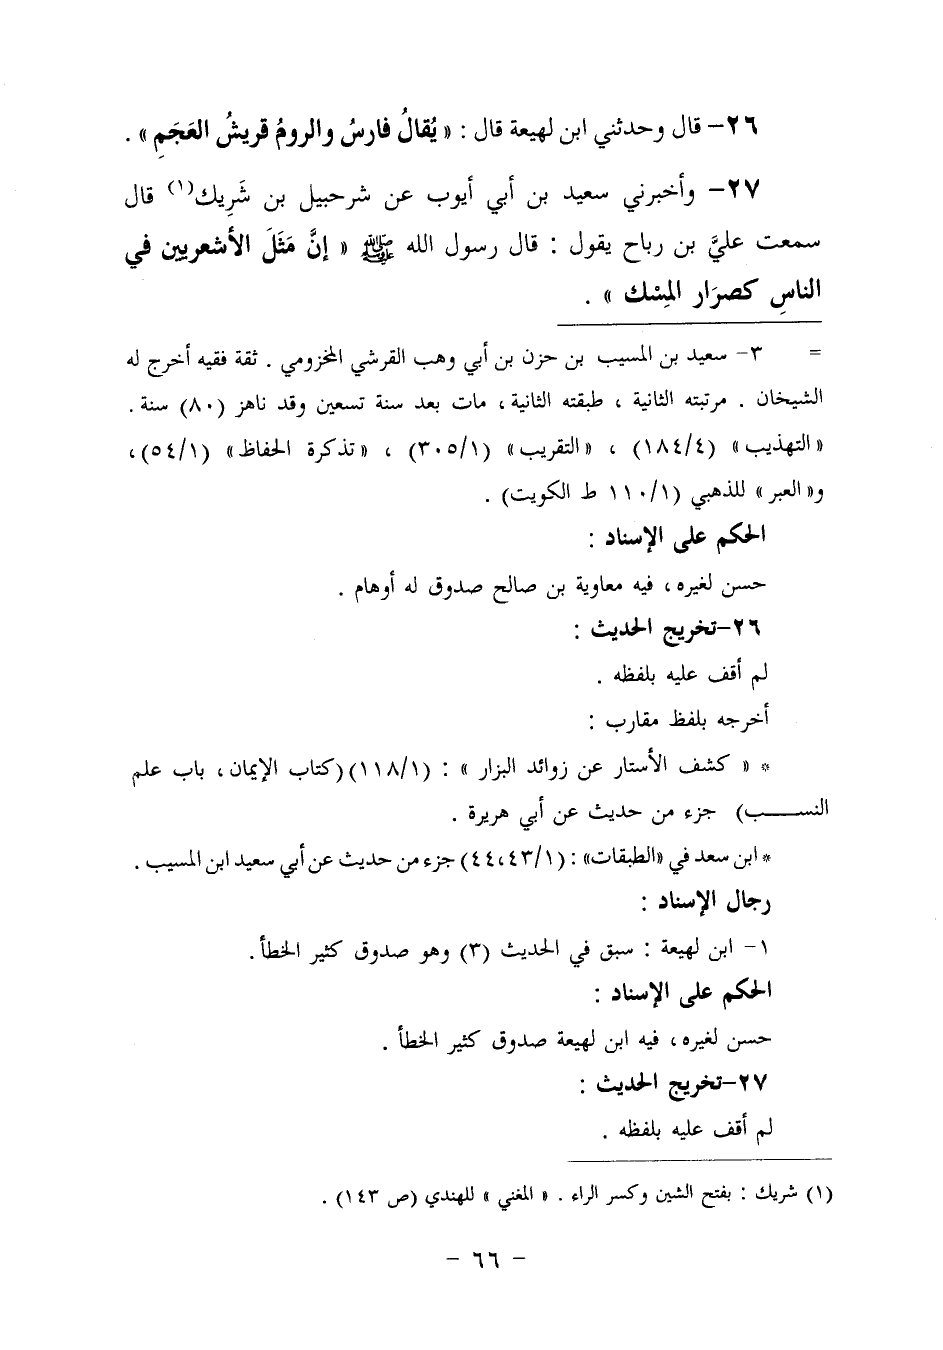 ٢٦- قال وحدثني ابن لهيعة قال : « يُقالُ فارسُ والرومُ قريشُ العَجَمِ » .
٢٧- وأخبرني سعيد بن أبي أيوب عن شرحبيل بن شَرِيك(١) قال
سمعت عليَّ بن رباح يقول : قال رسول الله ﷺ « إنَّ مَثَلَ الأشعريين في
الناسِ كصرَار المِسْك » .
= ٣- سعيد بن المسيب بن حزن بن أبي وهب القرشي المخزومي . ثقة فقيه أخرج له
الشيخان . مرتبته الثانية ، طبقته الثانية، مات بعد سنة تسعين وقد ناهز (٨٠) سنة .
«التهذيب» (١٨٤/٤) ، «التقريب» (٣٠٥/١) ، «تذكرة الحفاظ» (٥٤/١)،
و«العبر» للذهبي (١١٠/١ ط الكويت) .
الحكم على الإسناد :
حسن لغيره، فيه معاوية بن صالح صدوق له أوهام .
٢٦-تخريج الحديث :
لم أقف عليه بلفظه .
أخرجه بلفظ مقارب :
* « كشف الأستار عن زوائد البزار » : (١١٨/١)(كتاب الإيمان، باب علم
النســـب) جزء من حديث عن أبي هريرة .
* ابن سعد في «الطبقات» : (٤٤،٤٣/١) جزء من حديث عن أبي سعيد ابن المسيب .
رجال الإسناد :
١- ابن لهيعة : سبق في الحديث (٣) وهو صدوق كثير الخطأ.
الحكم على الإسناد :
حسن لغيره، فيه ابن لهيعة صدوق كثير الخطأ .
٢٧-تخريج الحديث :
لم أقف عليه بلفظه .
(١) شريك : بفتح الشين وكسر الراء . « المغني » للهندي (ص ١٤٣) .
- ٦٦ -